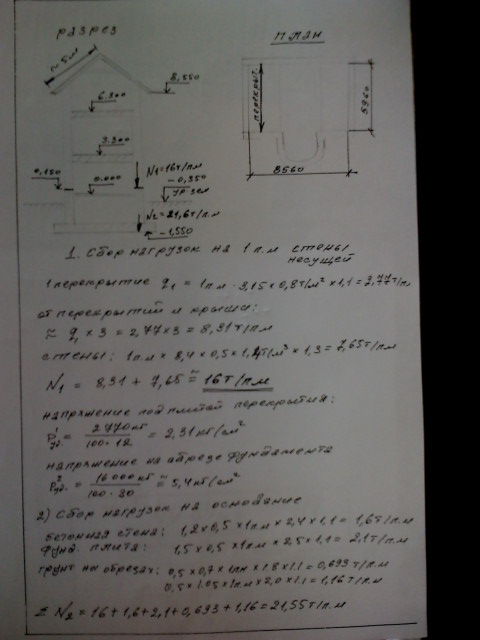 разрез
план
≈5м
8,550
6.300
3.300
0,150
0.000
N1=16т/п.м
-0,350
ур.зем
N2=21,6т/п.м
-1,550
перекрыт.
5960
8560
1. Сбор нагрузок на 1 п.м стены
несущей
1 перекрытие q1 = 1п.м · 3,15 × 0,8т/м² × 1,1 = 2,77т/п.м
от перекрытий и крыши:
≈ q1 × 3 = 2,77 × 3 = 8,31т/п.м
стены: 1п.м × 8,4 × 0,5 × 1,4т/м³ × 1,3 = 7,65т/п.м
N1 = 8,31 + 7,65 ≈ 16т/п.м
напряжение под плитой перекрытий:
= 2770кг / 100·12 = 2,31кг/см²
напряжение на обрезе фундамента
= 16000кг / 100·30 = 5,4кг/см²
2) Сбор нагрузок на основание
бетонная стена: 1,2×0,5×1п.м×2,4×1.1= 1,6т/п.м
фунд. плита: 1,5×0,5×1п.м×2,5×1,1= 2,1т/п.м
грунт на обрезах: 0,5×0,7×1п.м×1.8×1.1= 0,693т/п.м
0,5×1.05×1п.м×2,0×1.1=1,16т/п.м
Σ N2 = 16+1,6+2,1+0,693+1,16=21,55т/п.м